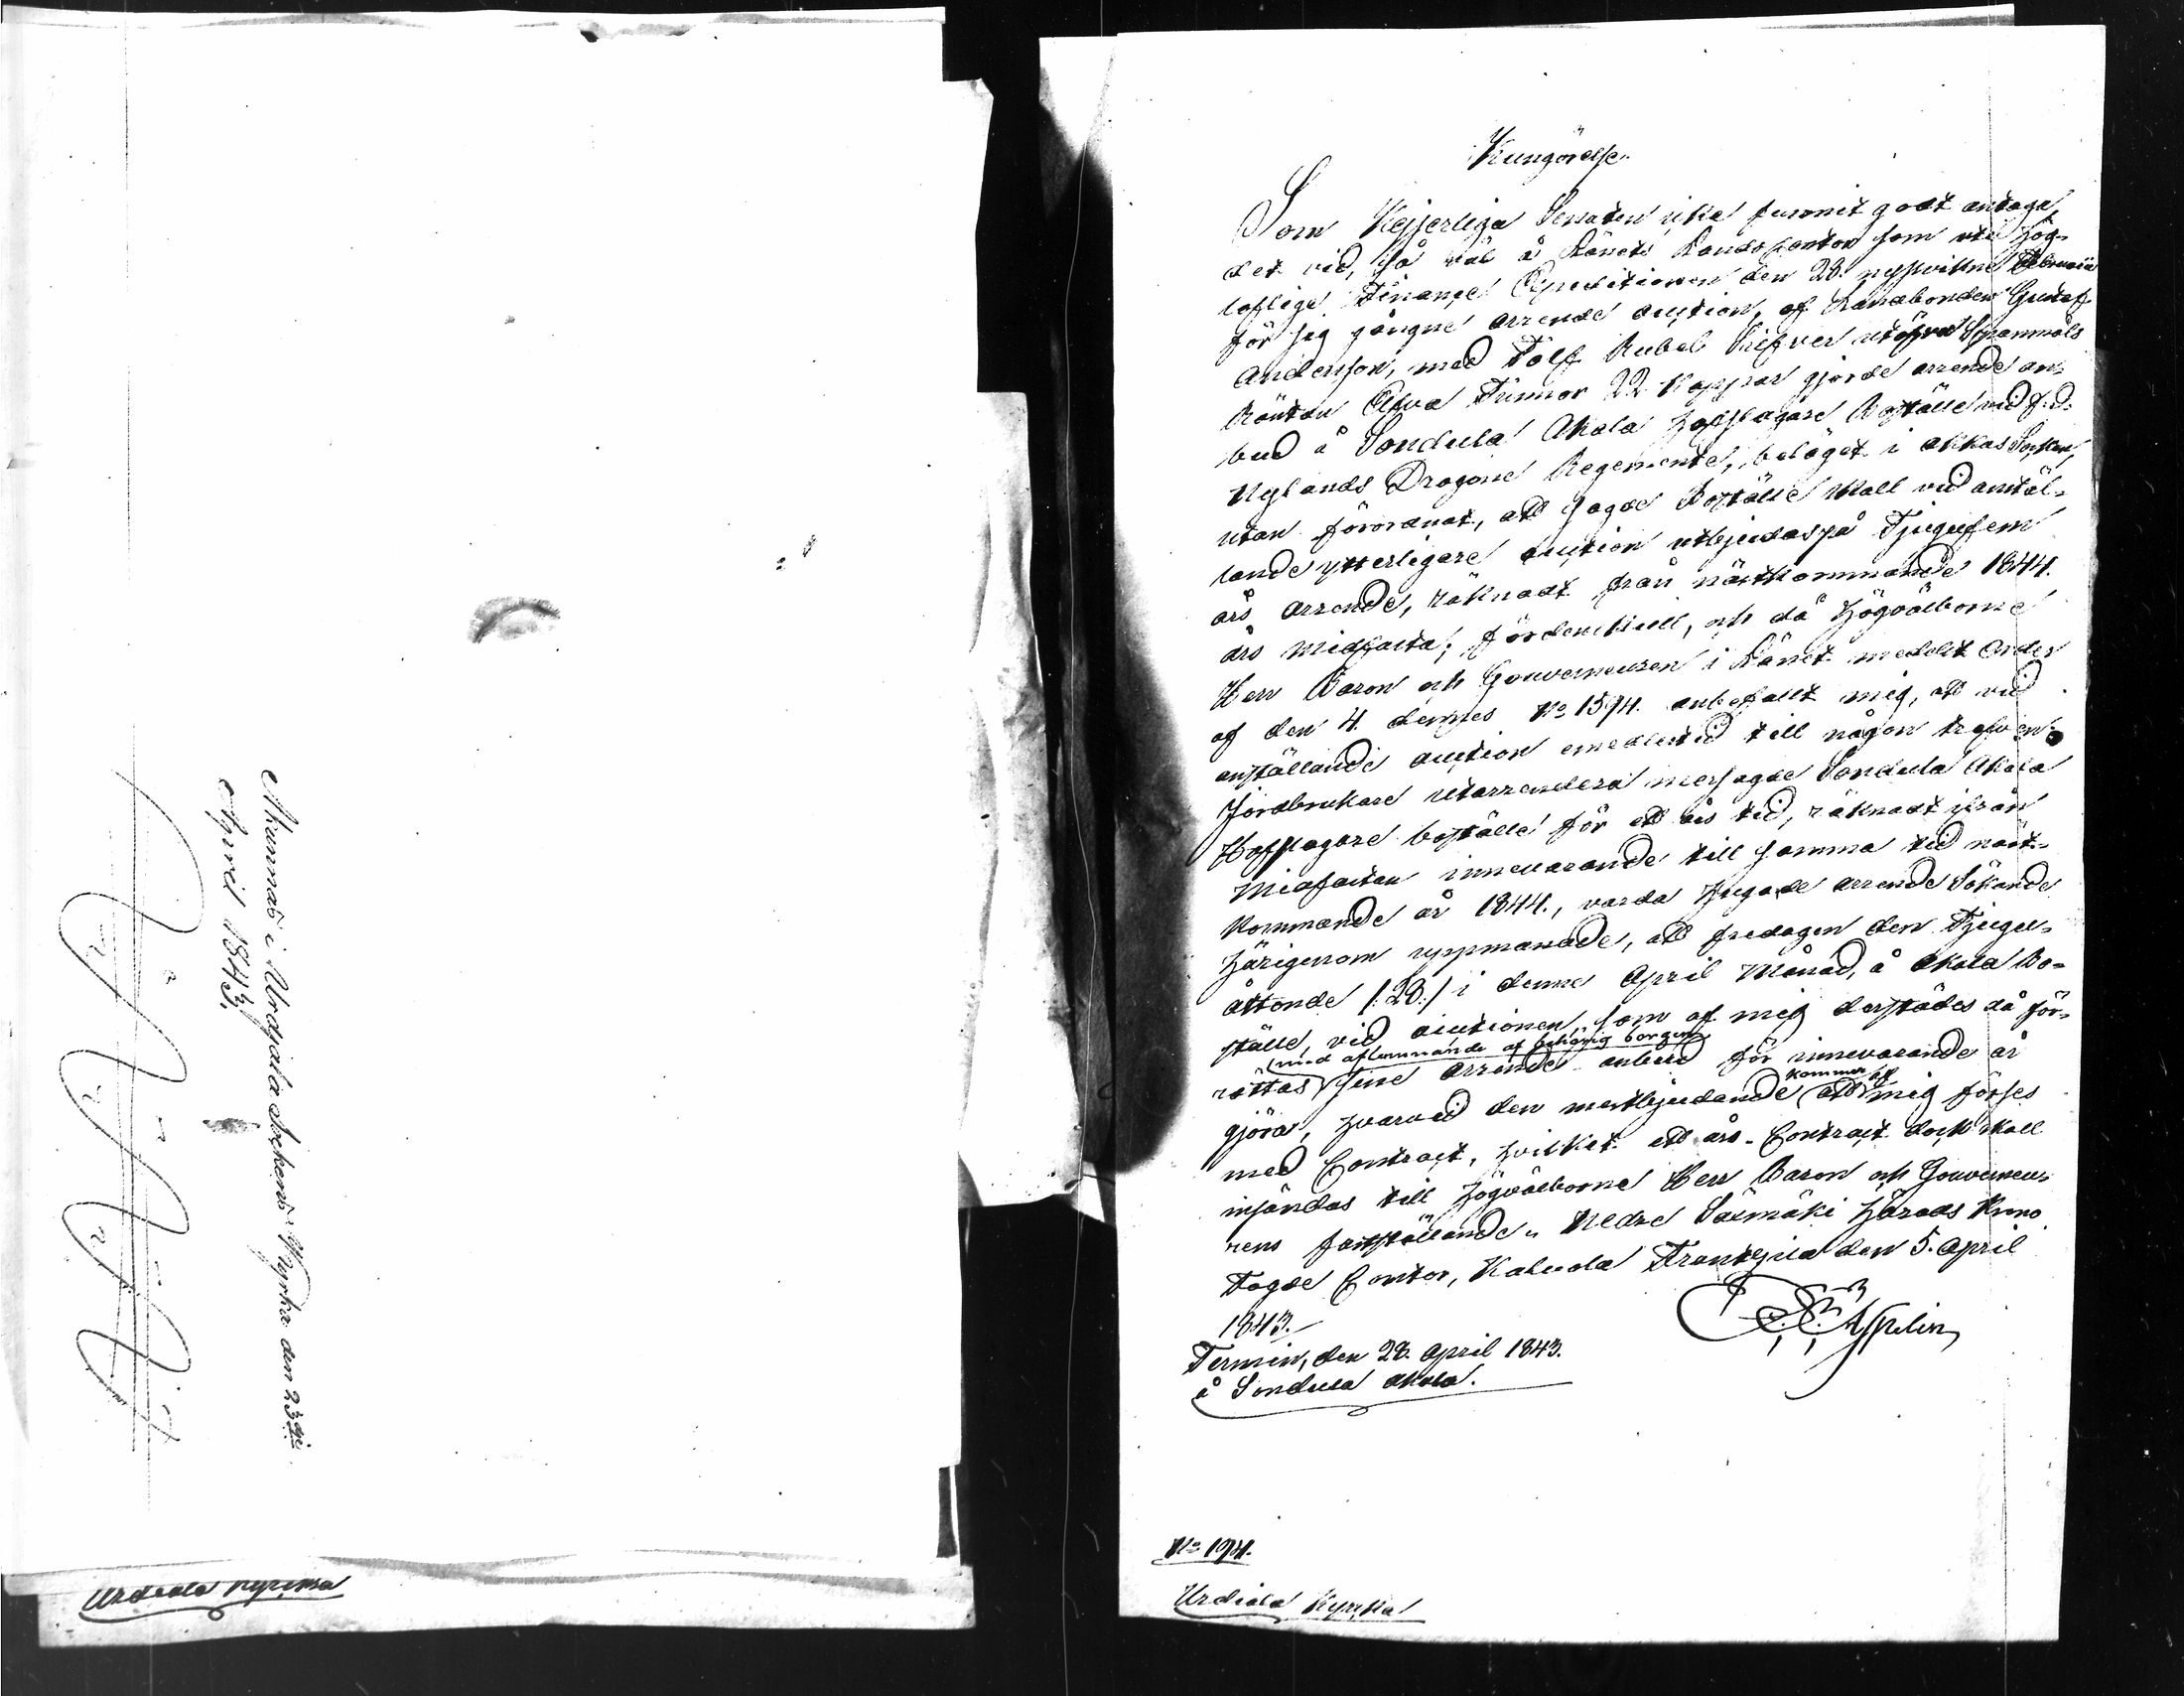 Akummas i Urdjala Sockens Kyrka den 23 
April 1843.
Urdiala Kyrcka
Kungörelse.
Som Kejserliga Senaten icke funnit godt antaga
det vid, så väl å Länets Landscontor som uti Hög-
loflige Finance Expeditionen den 28. nystvikne Februarii
för sig gångne arrende auction, af Landbonden Gustaf
Andersson, med Tolf Rubel Silfver utöfver Spanmåls
Räntan Elfva Tunnor 22 Kappar gjorde arrende an-
bud å Sondula Akola Hofslagare Boställe vid f.d.
Nylands Dragone Regemente, beläget i Akkas Socken,
utan förordnat, att sagde Boställe skall vid anstäl-
lande ytterligare auction utbjudas på Tjugufem
års arrende, räknadt från nästkommande 1844.
års Midfasta; fördenskull, och då Högvälborne
Herr Baron och Gouverneuren i Länet medelst Order
af den 4. dennes No 1594. anbefallt mig, att vid
anställande auction emedlertid till någon
Jordbrukare utarrendera mersagde Sondula Akola
Hofslagare boställe för ett års tid, räknadt ifrån
Midfastan innevarande till samma tid näst-
kommande år 1844., varda hugade arrende Sökande
härigenom uppmanade, att fredagen den Tjugu-
åttonde /:28:/ i denne April Månad, å Akola Bo-
ställe, vid auctionen, som af mig derstädes då för-
med aflemnande af behörig borgen
rättas sine arrende anbud för innevarande år
kommer af
gjöra, hvarvid den mestbjudande att mig förses
med Contract, hvilket ett års-Contract dock skall
insändas till Högvälborne Herr Baron och Gouverneu-
rens fastställande. Nedre Säxmäki Härads Krono
Fogde Contor, Kaluola Frantsila den 5. April
1843.
Termin, den 28. April 1843.
å Sondula Akola.
No 194.
Urdiala Kyrcka